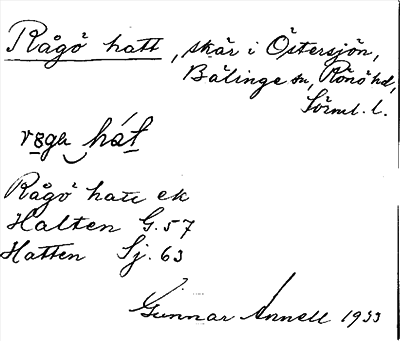 Rågö hatt, skär i Östersjön,
Bälinge sn, Rönö hd,
Sörml. l.
hát
Rågö hatt ek
Hatten G. 57
Hatten Sj. 63
Gunnar Annell 1933